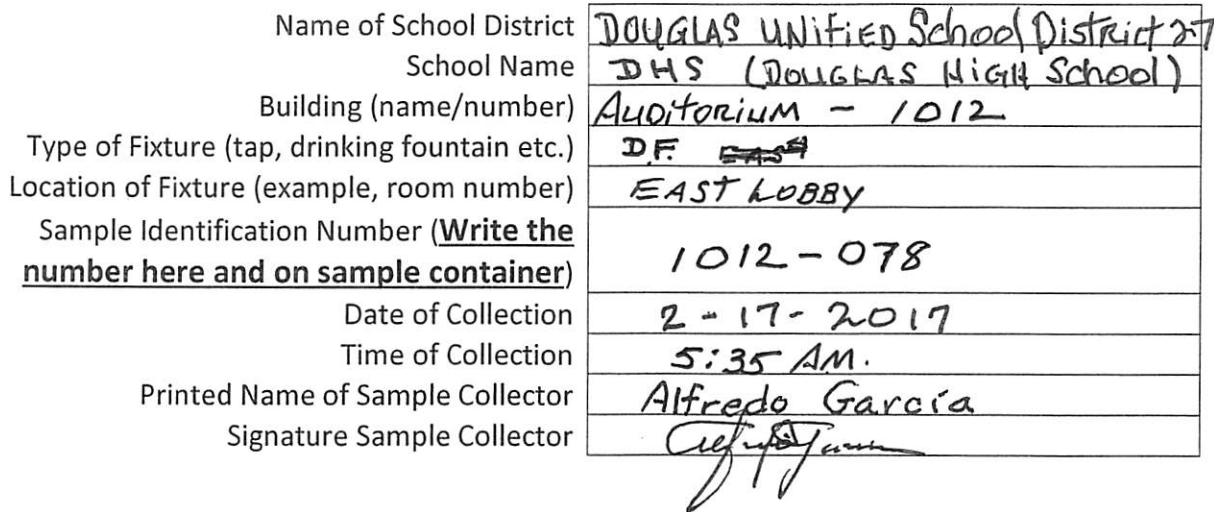 Name of School District DOUGLAS UNIFIED School District 27
School Name DHS (DOUGLAS HIGH School)
Building (name/number) AUDITORIUM - 1012
Type of Fixture (tap, drinking fountain etc.) D.F.
Location of Fixture (example, room number) EAST LOBBY
Sample Identification Number (Write the
number here and on sample container) 1012-078
Date of Collection 2-17-2017
Time of Collection 5:35 AM.
Printed Name of Sample Collector Alfredo García
Signature Sample Collector